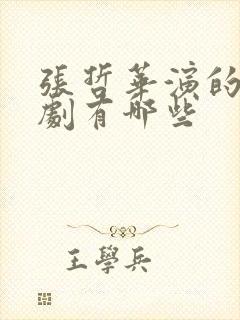 張哲華演的
劇有哪些
王學兵